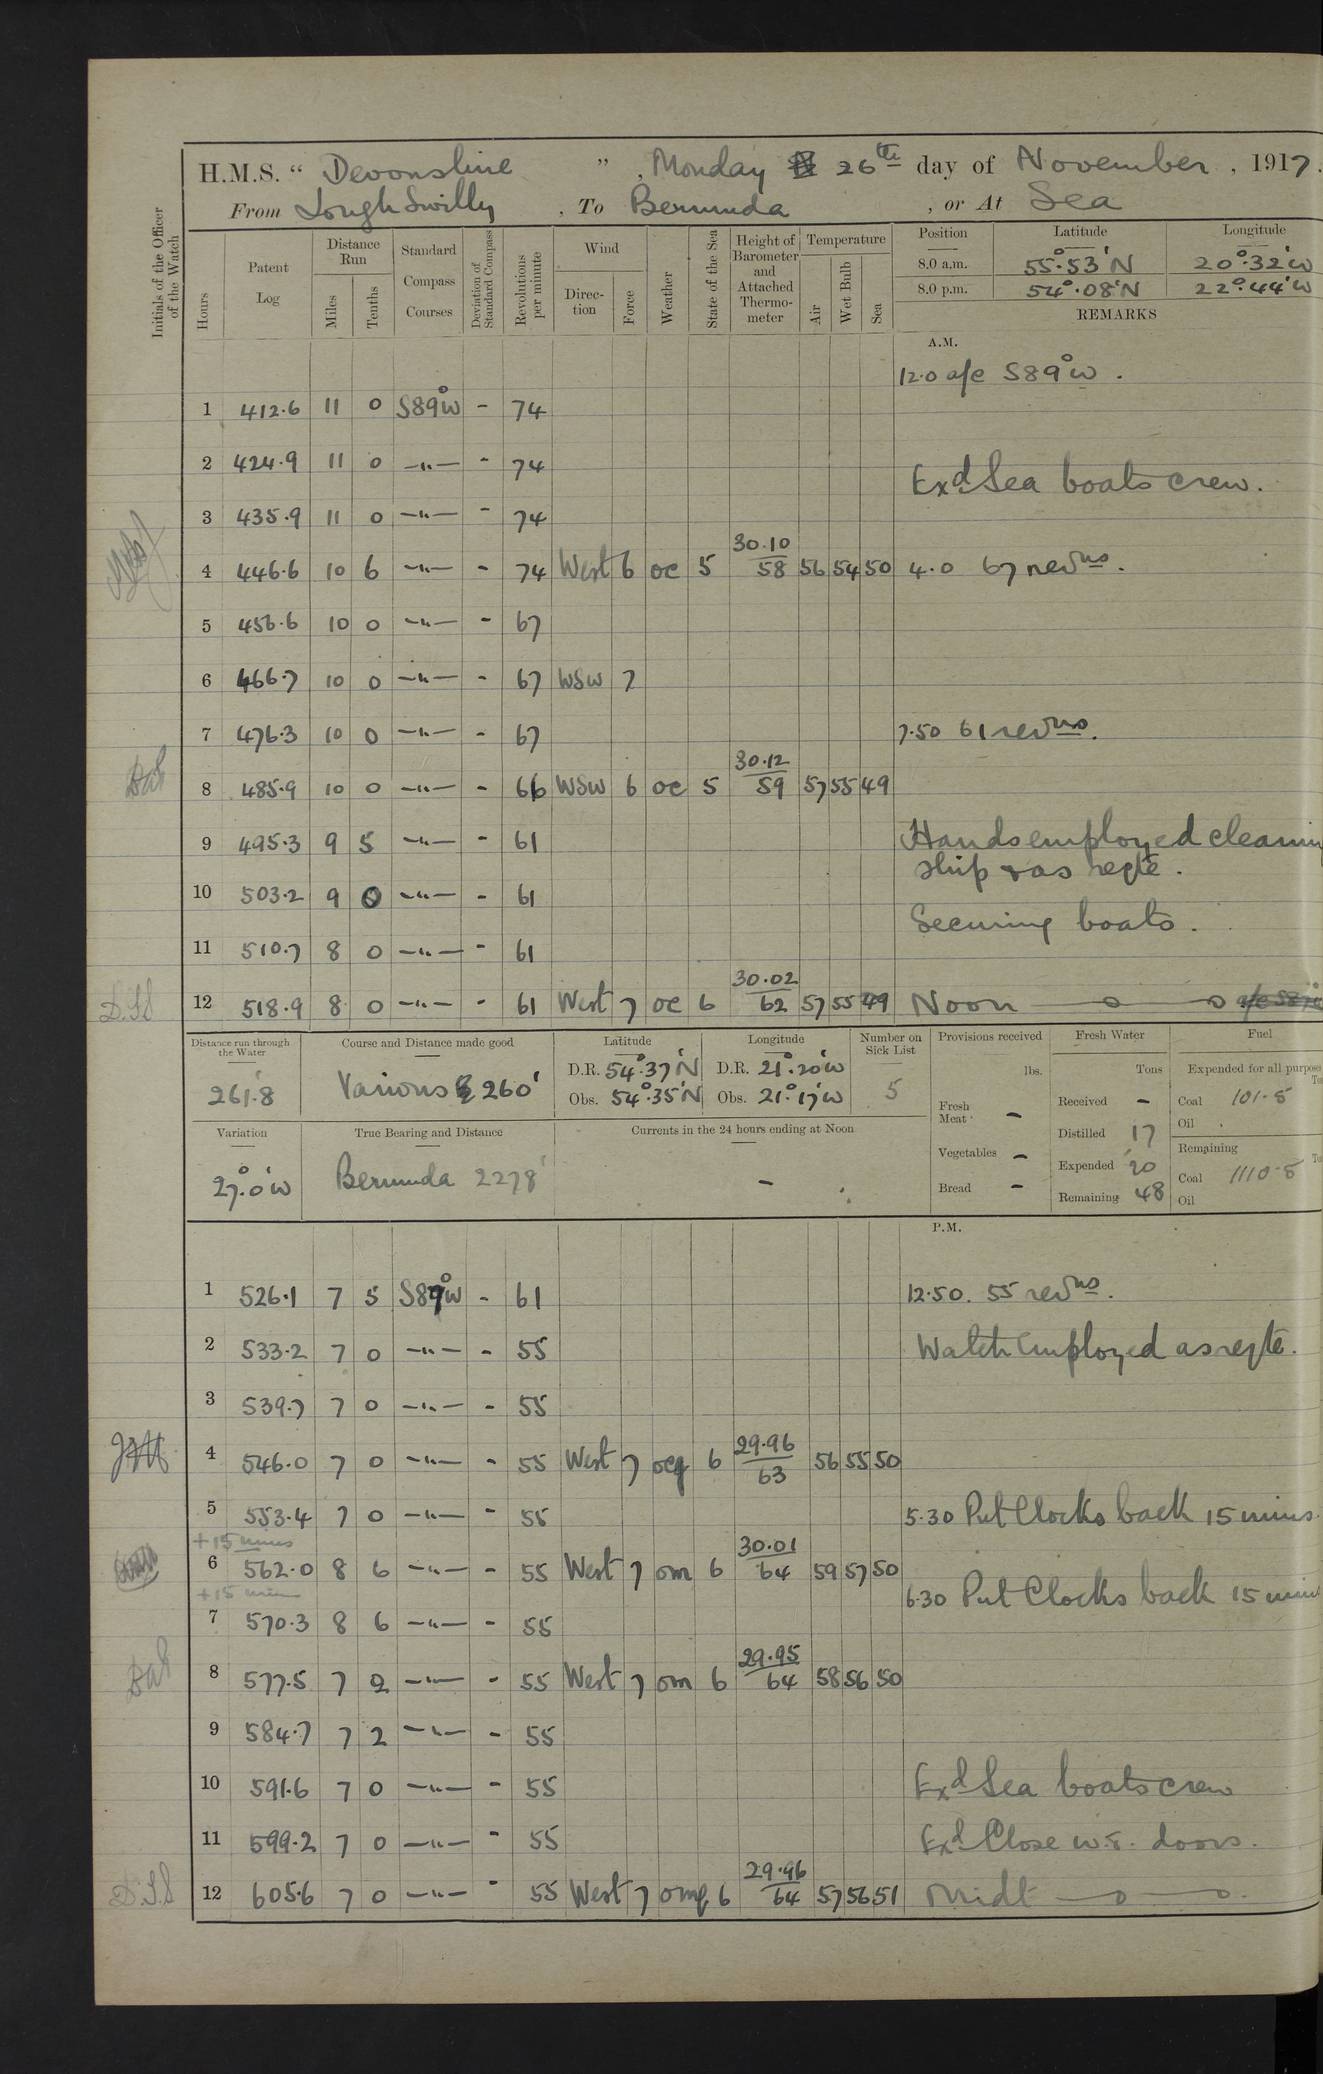 H.M.S. “ Devonshire ”, Monday 26th day of November, 1917.
From Lough Swilly, To Bermuda, or At Sea
Initials of the Officer of the Watch
Hours
Patent Log
Distance Run
Miles
Tenths
Standard Compass Courses
Deviation of Standard Compass
Revolutions per minute
Wind
Direction
Force
Weather
State of the Sea
Height of Barometer and Attached Thermometer
Temperature
Air
Wet Bulb
Sea
Position Latitude Longitude
8.0 a.m. 55°.53'N 20°.32'W
8.0 p.m. 54°.08'N 22°.44'W
REMARKS
A.M.
12.0 a/c S89°W.
1 412.6 11 0 S89°W - 74
2 424.9 11 0 —"— - 74
Exd Sea boats crew.
3 435.9 11 0 —"— - 74
4 446.6 10 6 —"— - 74 West 6 oc 5 30.10 58 56 54 50 4.0 67 revns.
5 456.6 10 0 —"— - 67
6 466.7 10 0 —"— - 67 WSW 7
7 476.3 10 0 —"— - 67 7.50 61 revns.
8 485.9 10 0 —"— - 66 WSW 6 oc 5 30.12 59 57 55 49
9 495.3 9 5 —"— - 61 Hands employed cleanin
ship & as reqte.
10 503.2 9 0 —"— - 61
Securing boats.
11 510.7 8 0 —"— - 61
12 518.9 8 0 —"— - 61 West 7 oc 6 30.02 62 57 55 49 Noon
Distance run through the Water
261.8
Course and Distance made good
Various & 260'
Latitude
D.R. 54°.37'N
Obs. 54°.35'N
Longitude
D.R. 21°.20'W
Obs. 21°.17'W
Number on Sick List
5
Provisions received
lbs.
Fresh Meat -
Vegetables -
Bread -
Fresh Water
Tons
Received -
Distilled 17
Expended 20
Remaining 48
Fuel
Expended for all purpose
Coal 101.5
Oil
Remaining
Coal 1110.5
Oil
Variation
27°.0'W
True Bearing and Distance
Bermuda 2278'
Currents in the 24 hours ending at Noon
-
P.M.
1 526.1 7 5 S89°W - 61 12.50. 55 revns.
2 533.2 7 0 —"— - 55 Watch Employed as reqte.
3 539.7 7 0 —"— - 55
4 546.0 7 0 —"— - 55 West 7 ocq 6 29.96 63 56 55 50
5 553.4 7 0 —"— - 55 5.30 Put Clocks back 15 mins.
+15 mins
6 562.0 8 6 —"— - 55 West 7 om 6 30.01 64 59 57 50
+15 min
6.30 Put Clocks back 15 min
7 570.3 8 6 —"— - 55
8 577.5 7 2 —"— - 55 West 7 om 6 29.95 64 58 56 50
9 584.7 7 2 —"— - 55
10 591.6 7 0 —"— - 55 Exd Sea boats crew
11 599.2 7 0 —"— - 55 Exd Close w.t. doors.
12 605.6 7 0 —"— - 55 West 7 omq 6 29.96 64 57 56 51 Midt